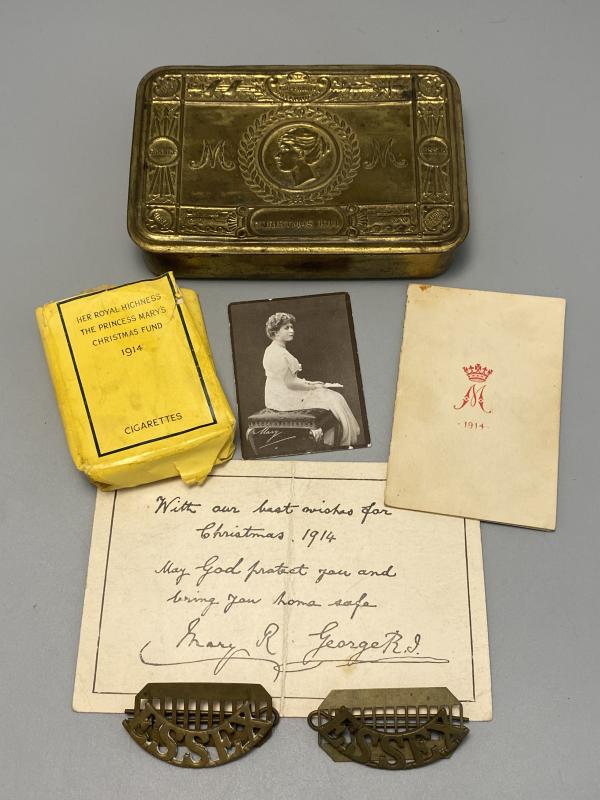 M M
CHRISTMAS 1914
HER ROYAL HIGHNESS
THE PRINCESS MARY'S
CHRISTMAS FUND
1914
CIGARETTES
Mary
M
· 1914 ·
With our best wishes for
Christmas, 1914
May God protect you and
bring you home safe
Mary R George R.I.
ESSEX
ESSEX